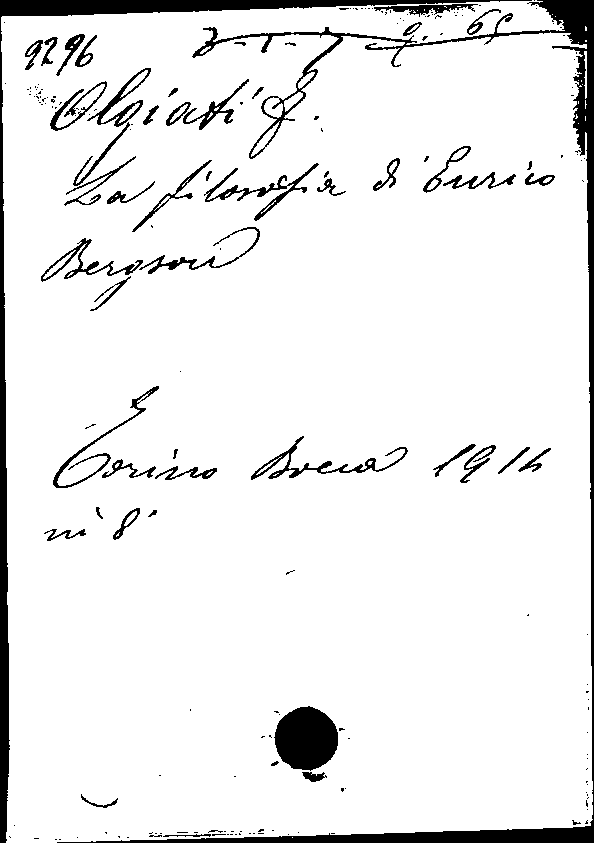 9296 3-1-7 9. 65
Olgiati F.
La filosofia di Enrico
Bergson
Torino Bocca 1914
in 8°